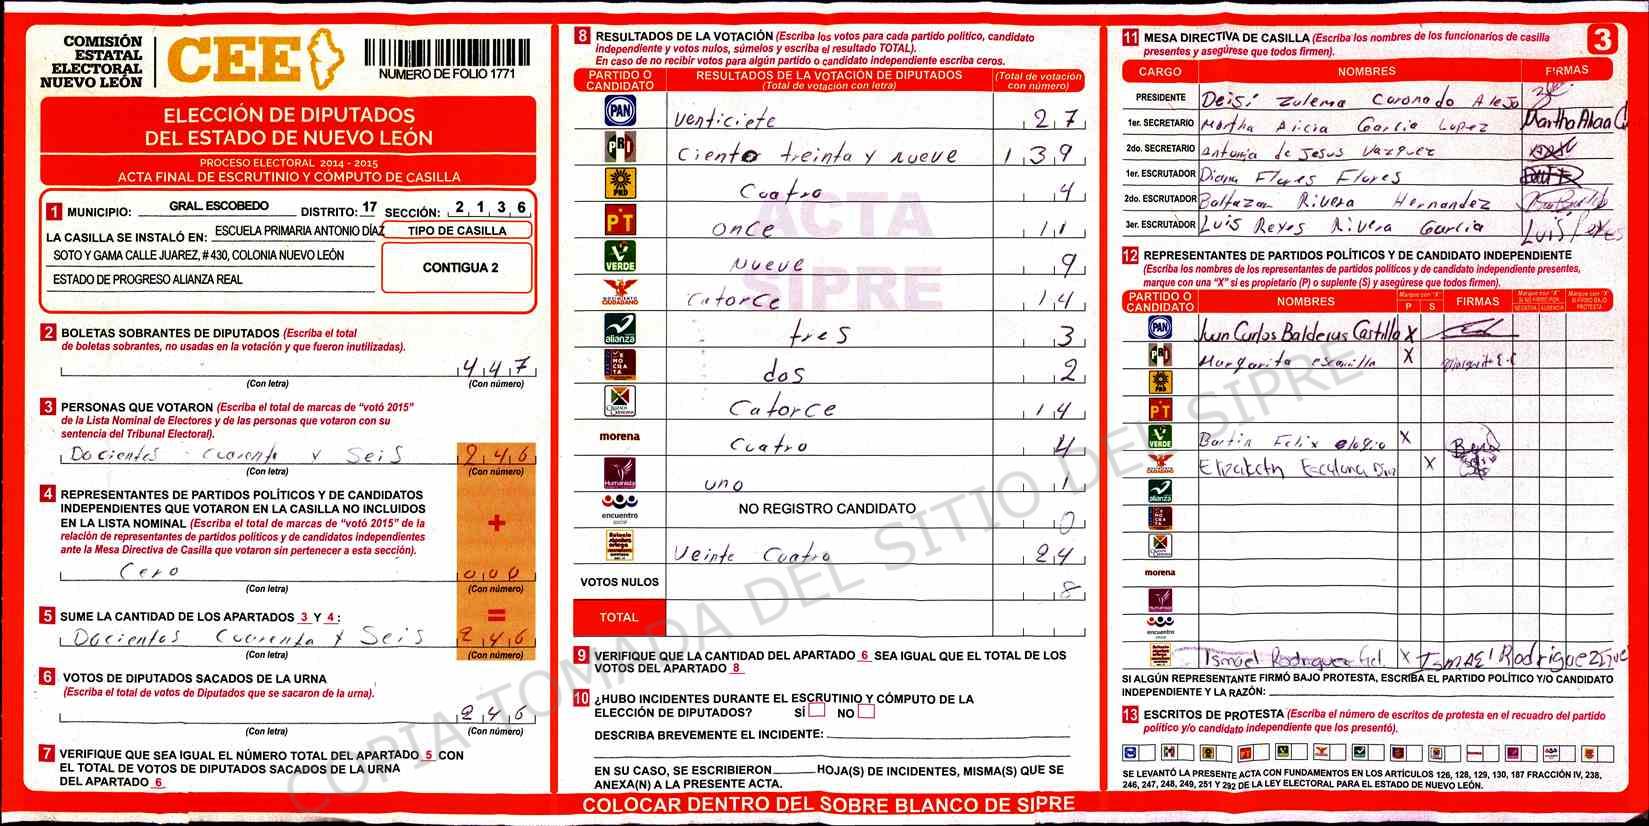 COMISIÓN
ESTATAL
ELECTORAL
NUEVO LEÓN
CEE
NUMERO DE FOLIO 1771
ELECCIÓN DE DIPUTADOS
DEL ESTADO DE NUEVO LEÓN
PROCESO ELECTORAL 2014 - 2015
ACTA FINAL DE ESCRUTINIO Y CÓMPUTO DE CASILLA
1 MUNICIPIO: GRAL. ESCOBEDO DISTRITO: 17 SECCIÓN: 2 1 3 6
LA CASILLA SE INSTALÓ EN: ESCUELA PRIMARIA ANTONIO DÍAZ
SOTO Y GAMA CALLE JUAREZ, # 430, COLONIA NUEVO LEÓN
ESTADO DE PROGRESO ALIANZA REAL
TIPO DE CASILLA
CONTIGUA 2
2 BOLETAS SOBRANTES DE DIPUTADOS (Escriba el total
de boletas sobrantes, no usadas en la votación y que fueron inutilizadas).
4 4 7
(Con letra) (Con número)
3 PERSONAS QUE VOTARON (Escriba el total de marcas de "votó 2015"
de la Lista Nominal de Electores y de las personas que votaron con su
sentencia del Tribunal Electoral).
Docientos cuarenta y Seis 2 4 6
(Con letra) (Con número)
4 REPRESENTANTES DE PARTIDOS POLÍTICOS Y DE CANDIDATOS
INDEPENDIENTES QUE VOTARON EN LA CASILLA NO INCLUIDOS
EN LA LISTA NOMINAL (Escriba el total de marcas de "votó 2015" de la
relación de representantes de partidos políticos y de candidatos independientes
ante la Mesa Directiva de Casilla que votaron sin pertenecer a esta sección).
+
Cero 0 0 0
(Con letra) (Con número)
5 SUME LA CANTIDAD DE LOS APARTADOS 3 Y 4: =
Docientos Cuarenta y Seis 2 4 6
(Con letra) (Con número)
6 VOTOS DE DIPUTADOS SACADOS DE LA URNA
(Escriba el total de votos de Diputados que se sacaron de la urna).
2 4 6
(Con letra) (Con número)
7 VERIFIQUE QUE SEA IGUAL EL NÚMERO TOTAL DEL APARTADO 5 CON
EL TOTAL DE VOTOS DE DIPUTADOS SACADOS DE LA URNA
DEL APARTADO 6
8 RESULTADOS DE LA VOTACIÓN (Escriba los votos para cada partido político, candidato
independiente y votos nulos, súmelos y escriba el resultado TOTAL).
En caso de no recibir votos para algún partido o candidato independiente escriba ceros.
PARTIDO O CANDIDATO RESULTADOS DE LA VOTACIÓN DE DIPUTADOS (Total de votación con letra) (Total de votación con número)
PAN venticiete 2 7
PRI Ciento treinta y nueve 1 3 9
PRD Cuatro 4
PT once 1 1
VERDE nueve 9
MOVIMIENTO CIUDADANO Catorce 1 4
alianza tres 3
DEMOCRATA dos 2
Catorce 1 4
morena Cuatro 4
Humanista uno 1
encuentro social NO REGISTRO CANDIDATO 0
Veinte Cuatro 2 4
VOTOS NULOS 8
TOTAL
ACTA
SIPRE
9 VERIFIQUE QUE LA CANTIDAD DEL APARTADO 6 SEA IGUAL QUE EL TOTAL DE LOS
VOTOS DEL APARTADO 8
10 ¿HUBO INCIDENTES DURANTE EL ESCRUTINIO Y CÓMPUTO DE LA
ELECCIÓN DE DIPUTADOS? SÍ NO
DESCRIBA BREVEMENTE EL INCIDENTE:
EN SU CASO, SE ESCRIBIERON HOJA(S) DE INCIDENTES, MISMA(S) QUE SE
ANEXA(N) A LA PRESENTE ACTA.
COLOCAR DENTRO DEL SOBRE BLANCO DE SIPRE
COPIA TOMADA DEL SITIO DEL SIPRE
11 MESA DIRECTIVA DE CASILLA (Escriba los nombres de los funcionarios de casilla
presentes y asegúrese que todos firmen).
3
CARGO NOMBRES FIRMAS
PRESIDENTE Deisi Zulema Coronado Alejo
1er. SECRETARIO Martha Alicia Garcia Lopez Martha Alicia G
2do. SECRETARIO Antonia de Jesus Vazquez
1er. ESCRUTADOR Diana Flores Flores
2do. ESCRUTADOR Baltazar Rivera Hernandez
3er. ESCRUTADOR Luis Reyes Rivera Garcia Luis Reyes
12 REPRESENTANTES DE PARTIDOS POLÍTICOS Y DE CANDIDATO INDEPENDIENTE
(Escriba los nombres de los representantes de partidos políticos y de candidato independiente presentes,
marque con una "X" si es propietario (P) o suplente (S) y asegúrese que todos firmen).
PARTIDO O CANDIDATO NOMBRES Marque con "X" P S FIRMAS Marque con "X" SI NO FIRMÓ POR: NEGATIVA AUSENCIA Marque con "X" SI FIRMÓ BAJO PROTESTA
PAN Juan Carlos Balderas Castillo X
PRI Margarita escamilla X Margarita E.C
PRD
PT
VERDE Bartin Felix elogio X
MOVIMIENTO CIUDADANO Elizabeth Escalona Diaz X
alianza
morena
Humanista
encuentro social
Ismael Rodriguez Gil X Ismael Rodriguez
SI ALGÚN REPRESENTANTE FIRMÓ BAJO PROTESTA, ESCRIBA EL PARTIDO POLÍTICO Y/O CANDIDATO
INDEPENDIENTE Y LA RAZÓN:
13 ESCRITOS DE PROTESTA (Escriba el número de escritos de protesta en el recuadro del partido
político y/o candidato independiente que los presentó).
SE LEVANTÓ LA PRESENTE ACTA CON FUNDAMENTOS EN LOS ARTÍCULOS 126, 128, 129, 130, 187 FRACCIÓN IV, 238,
246, 247, 248, 249, 251 Y 292 DE LA LEY ELECTORAL PARA EL ESTADO DE NUEVO LEÓN.